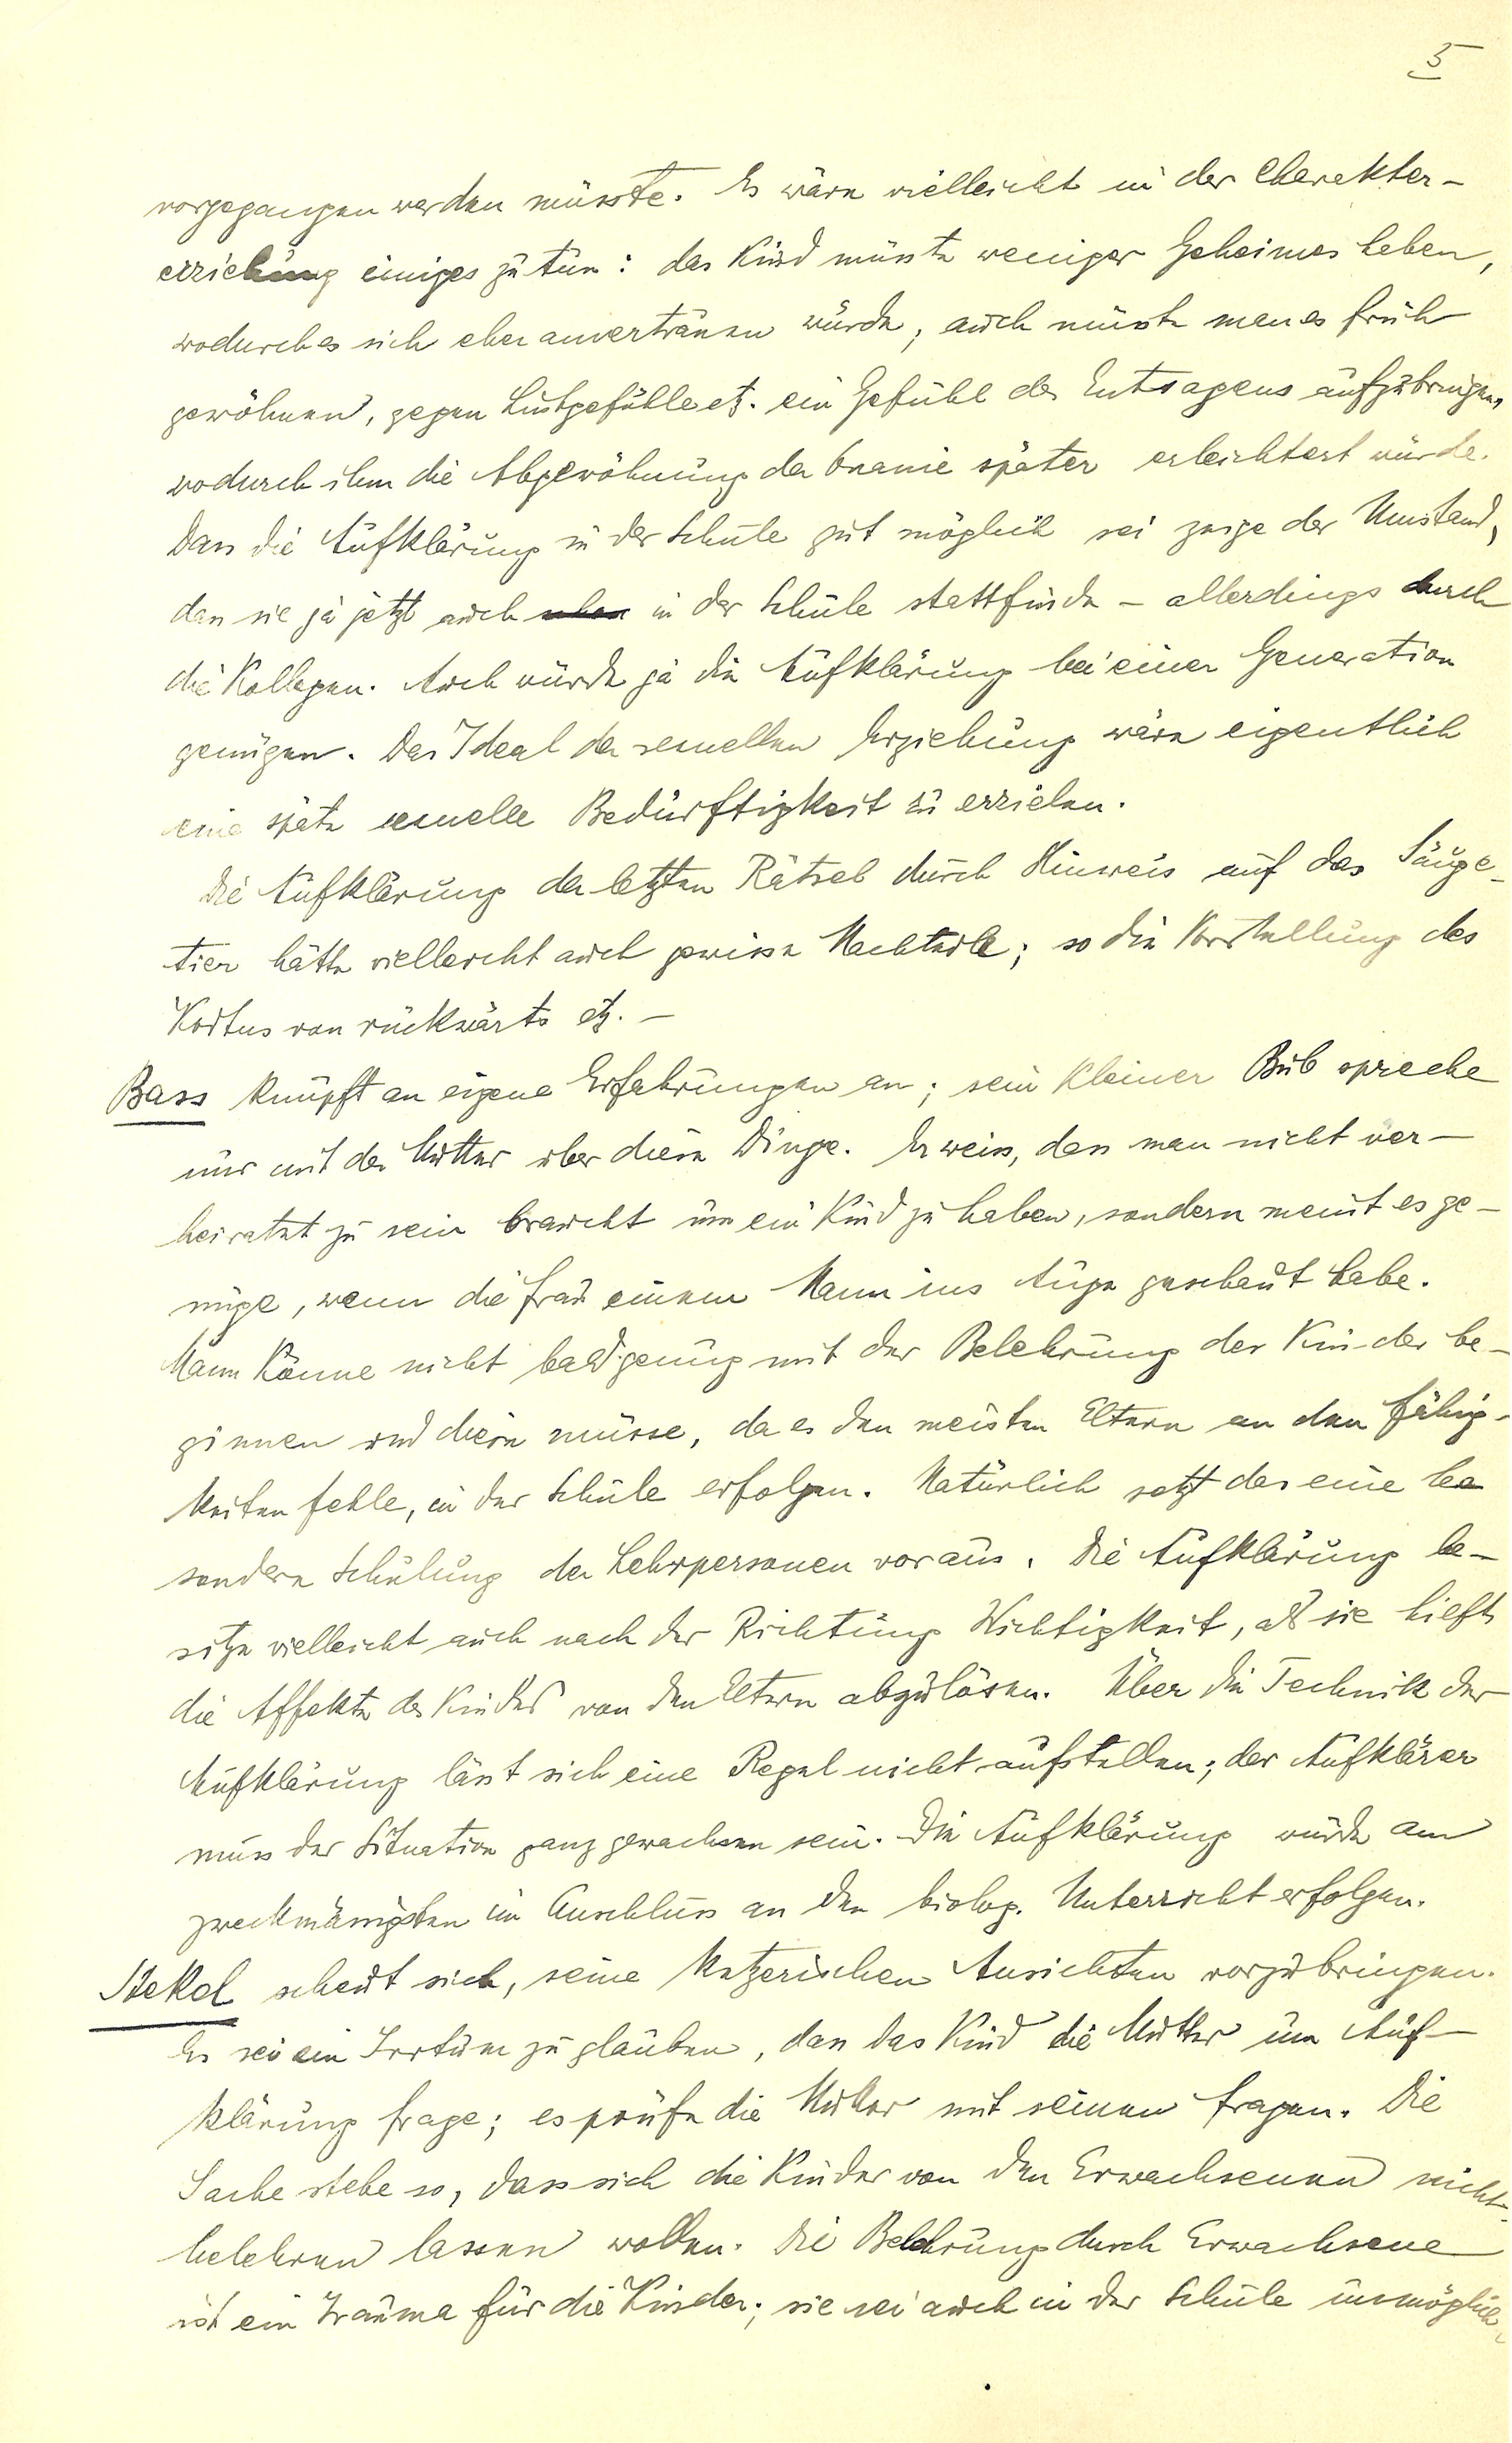 5
vorgegangen werden müsste. Es wäre vielleicht in der Charakter-
erziehung einiges zu tun: das Kind müsste weniger Geheimes haben,
wodurch es sich eher anvertrauen würde; auch müsste man es früh
gewöhnen, gegen Lustgefühle etz. ein Gefühl des Entsagens aufzubringen,
wodurch ihm die Abgewöhnung der Onanie später erleichtert würde.
Dass die Aufklärung in der Schule gut möglich sei zeige der Umstand,
dass sie ja jetzt auch in der Schule stattfinde – allerdings durch
die Kollegen. Auch würde ja die Aufklärung bei einer Generation
genügen. Das Ideal der sexuellen Erziehung wäre eigentlich
eine späte sexuelle Bedürftigkeit zu erzielen.
Die Aufklärung der letzten Rätsel durch Hinweis auf das Säuge-
tier hätte vielleicht auch gewisse Nachteile; so die Vorstellung des
Koitus von rückwärts etz. –
Bass knüpft an eigene Erfahrungen an; sein kleiner Bub spreche
nur mit der Mutter über diese Dinge. Er weiss, dass man nicht ver-
heiratet zu sein braucht um ein Kind zu haben, sondern meint es ge-
nüge, wenn die Frau einem Mann ins Auge geschaut habe.
Mann könne nicht bald genug mit der Belehrung der Kinder be-
ginnen und diese müsse, da es den meisten Eltern an den Fähig-
keiten fehle, in der Schule erfolgen. Natürlich setzt das eine be
sondere Schulung der Lehrpersonen voraus. Die Aufklärung be-
sitze vielleicht auch nach der Richtung Wichtigkeit, als sie hieft
die Affekte des Kindes von den Eltern abzulösen. Über die Technik der
Aufklärung lässt sich eine Regel nicht aufstellen; der Aufklärer
muss der Situation ganz gewachsen sein. Die Aufklärung würde am
zweckmässigsten im Anschluss an den biolog. Unterricht erfolgen.
Stekel scheut sich, seine ketzerischen Ansichten vorzubringen.
Es sei ein Irrtum zu glauben, dass das Kind die Mutter um Auf-
klärung frage; es prüfe die Mutter mit seinen Fragen. Die
Sache stehe so, dass sich die Kinder von den Erwachsenen nicht
belehren lassen wollen. Die Belehrung durch Erwachsene
ist ein Trauma für die Kinder; sie sei auch in der Schule unmöglich,